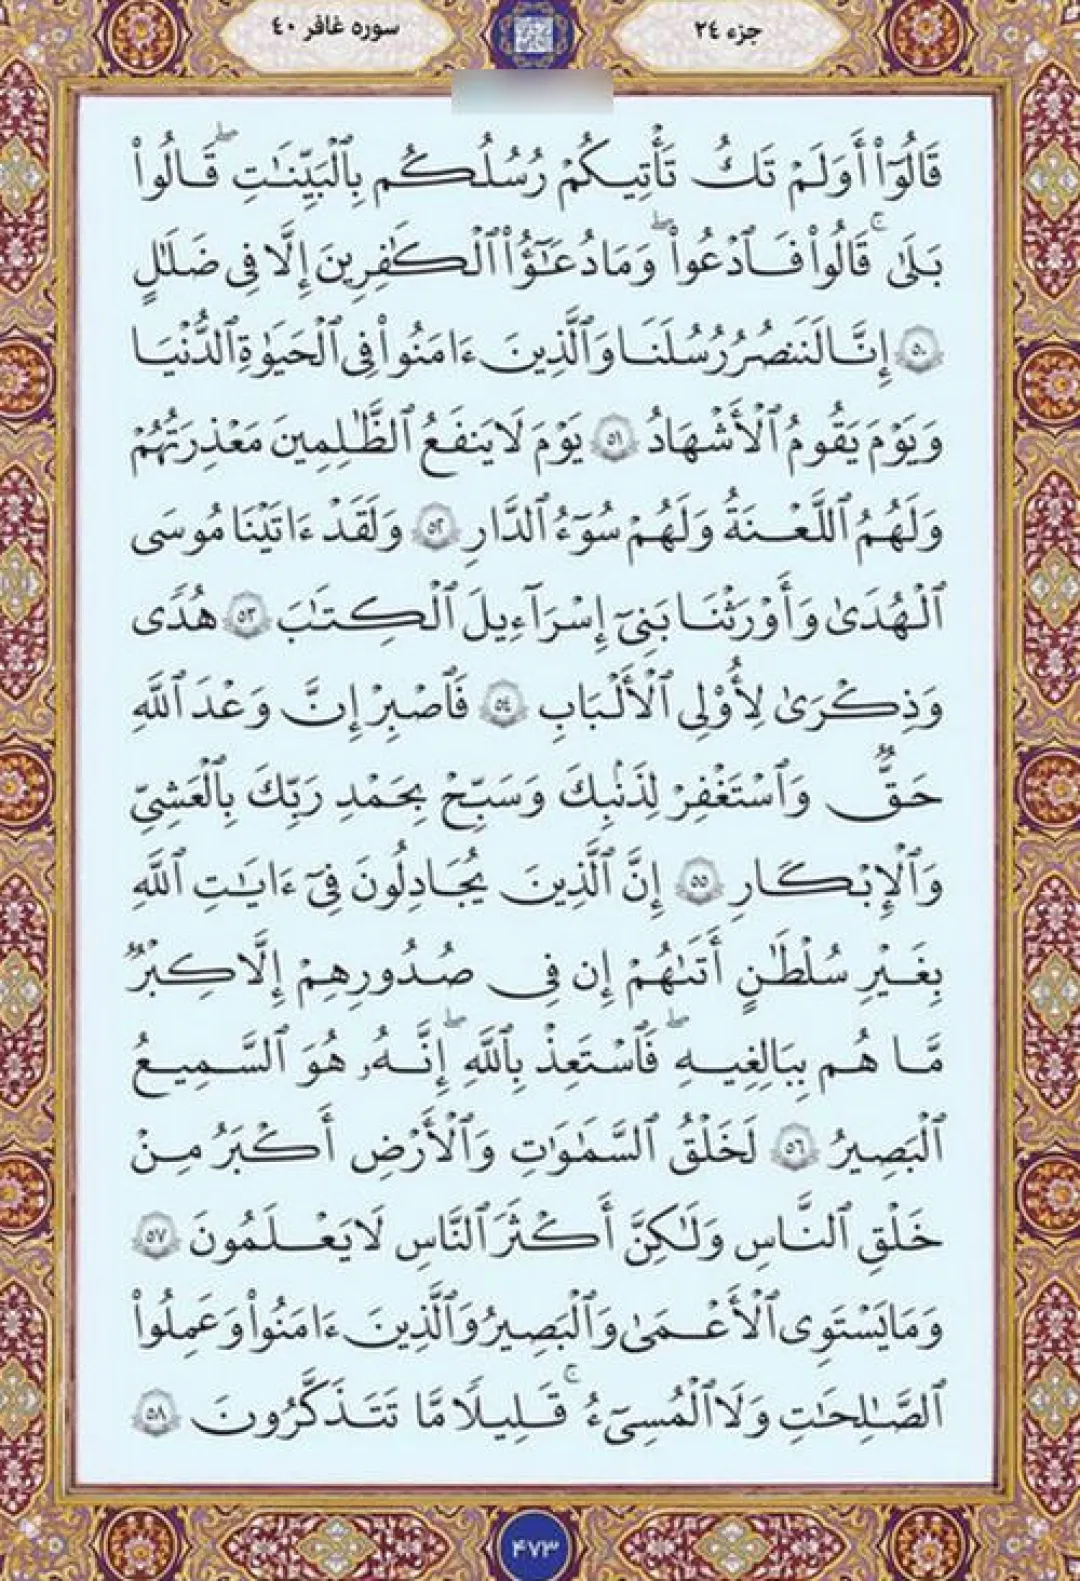 جزء ٢٤
سوره غافر ٤٠
قَالُوٓا۟ أَوَلَمْ تَكُ تَأْتِيكُمْ رُسُلُكُم بِٱلْبَيِّنَـٰتِ ۖ قَالُوا۟
بَلَىٰ ۚ قَالُوا۟ فَٱدْعُوا۟ ۗ وَمَا دُعَـٰٓؤُا۟ ٱلْكَـٰفِرِينَ إِلَّا فِى ضَلَـٰلٍ
٥٠ إِنَّا لَنَنصُرُ رُسُلَنَا وَٱلَّذِينَ ءَامَنُوا۟ فِى ٱلْحَيَوٰةِ ٱلدُّنْيَا
وَيَوْمَ يَقُومُ ٱلْأَشْهَـٰدُ ٥١ يَوْمَ لَا يَنفَعُ ٱلظَّـٰلِمِينَ مَعْذِرَتُهُمْ
وَلَهُمُ ٱللَّعْنَةُ وَلَهُمْ سُوٓءُ ٱلدَّارِ ٥٢ وَلَقَدْ ءَاتَيْنَا مُوسَى
ٱلْهُدَىٰ وَأَوْرَثْنَا بَنِىٓ إِسْرَٰٓءِيلَ ٱلْكِتَـٰبَ ٥٣ هُدًى
وَذِكْرَىٰ لِأُو۟لِى ٱلْأَلْبَـٰبِ ٥٤ فَٱصْبِرْ إِنَّ وَعْدَ ٱللَّهِ
حَقٌّ وَٱسْتَغْفِرْ لِذَنۢبِكَ وَسَبِّحْ بِحَمْدِ رَبِّكَ بِٱلْعَشِىِّ
وَٱلْإِبْكَـٰرِ ٥٥ إِنَّ ٱلَّذِينَ يُجَـٰدِلُونَ فِىٓ ءَايَـٰتِ ٱللَّهِ
بِغَيْرِ سُلْطَـٰنٍ أَتَىٰهُمْ إِن فِى صُدُورِهِمْ إِلَّا كِبْرٌ
مَّا هُم بِبَـٰلِغِيهِ ۖ فَٱسْتَعِذْ بِٱللَّهِ ۖ إِنَّهُۥ هُوَ ٱلسَّمِيعُ
ٱلْبَصِيرُ ٥٦ لَخَلْقُ ٱلسَّمَـٰوَٰتِ وَٱلْأَرْضِ أَكْبَرُ مِنْ
خَلْقِ ٱلنَّاسِ وَلَـٰكِنَّ أَكْثَرَ ٱلنَّاسِ لَا يَعْلَمُونَ ٥٧
وَمَا يَسْتَوِى ٱلْأَعْمَىٰ وَٱلْبَصِيرُ وَٱلَّذِينَ ءَامَنُوا۟ وَعَمِلُوا۟
ٱلصَّـٰلِحَـٰتِ وَلَا ٱلْمُسِىٓءُ ۚ قَلِيلًا مَّا تَتَذَكَّرُونَ ٥٨
۴۷۳